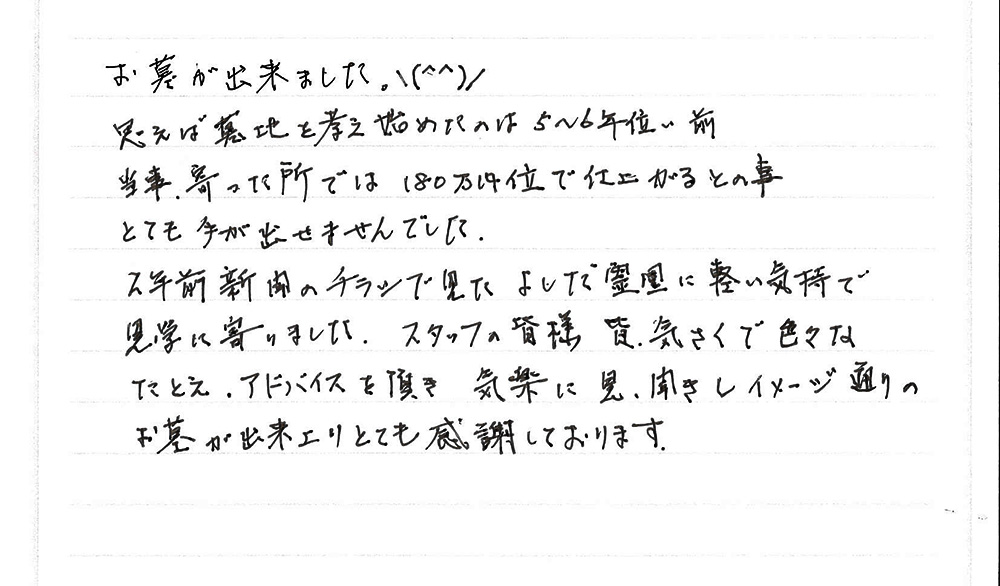 お墓が出来ました。\(^^)/
思えば墓地を考え始めたのは5〜6年位い前
当事、寄った所では180万円位で仕上がるとの事
とても手が出せませんでした。
2年前新聞のチラシで見た よしだ霊園に軽い気持で
見学に寄りました。スタッフの皆様 皆、気さくで色々な
たとえ、アドバイスを頂き 気楽に見、聞きしイメージ通りの
お墓が出来上りとても感謝しております。